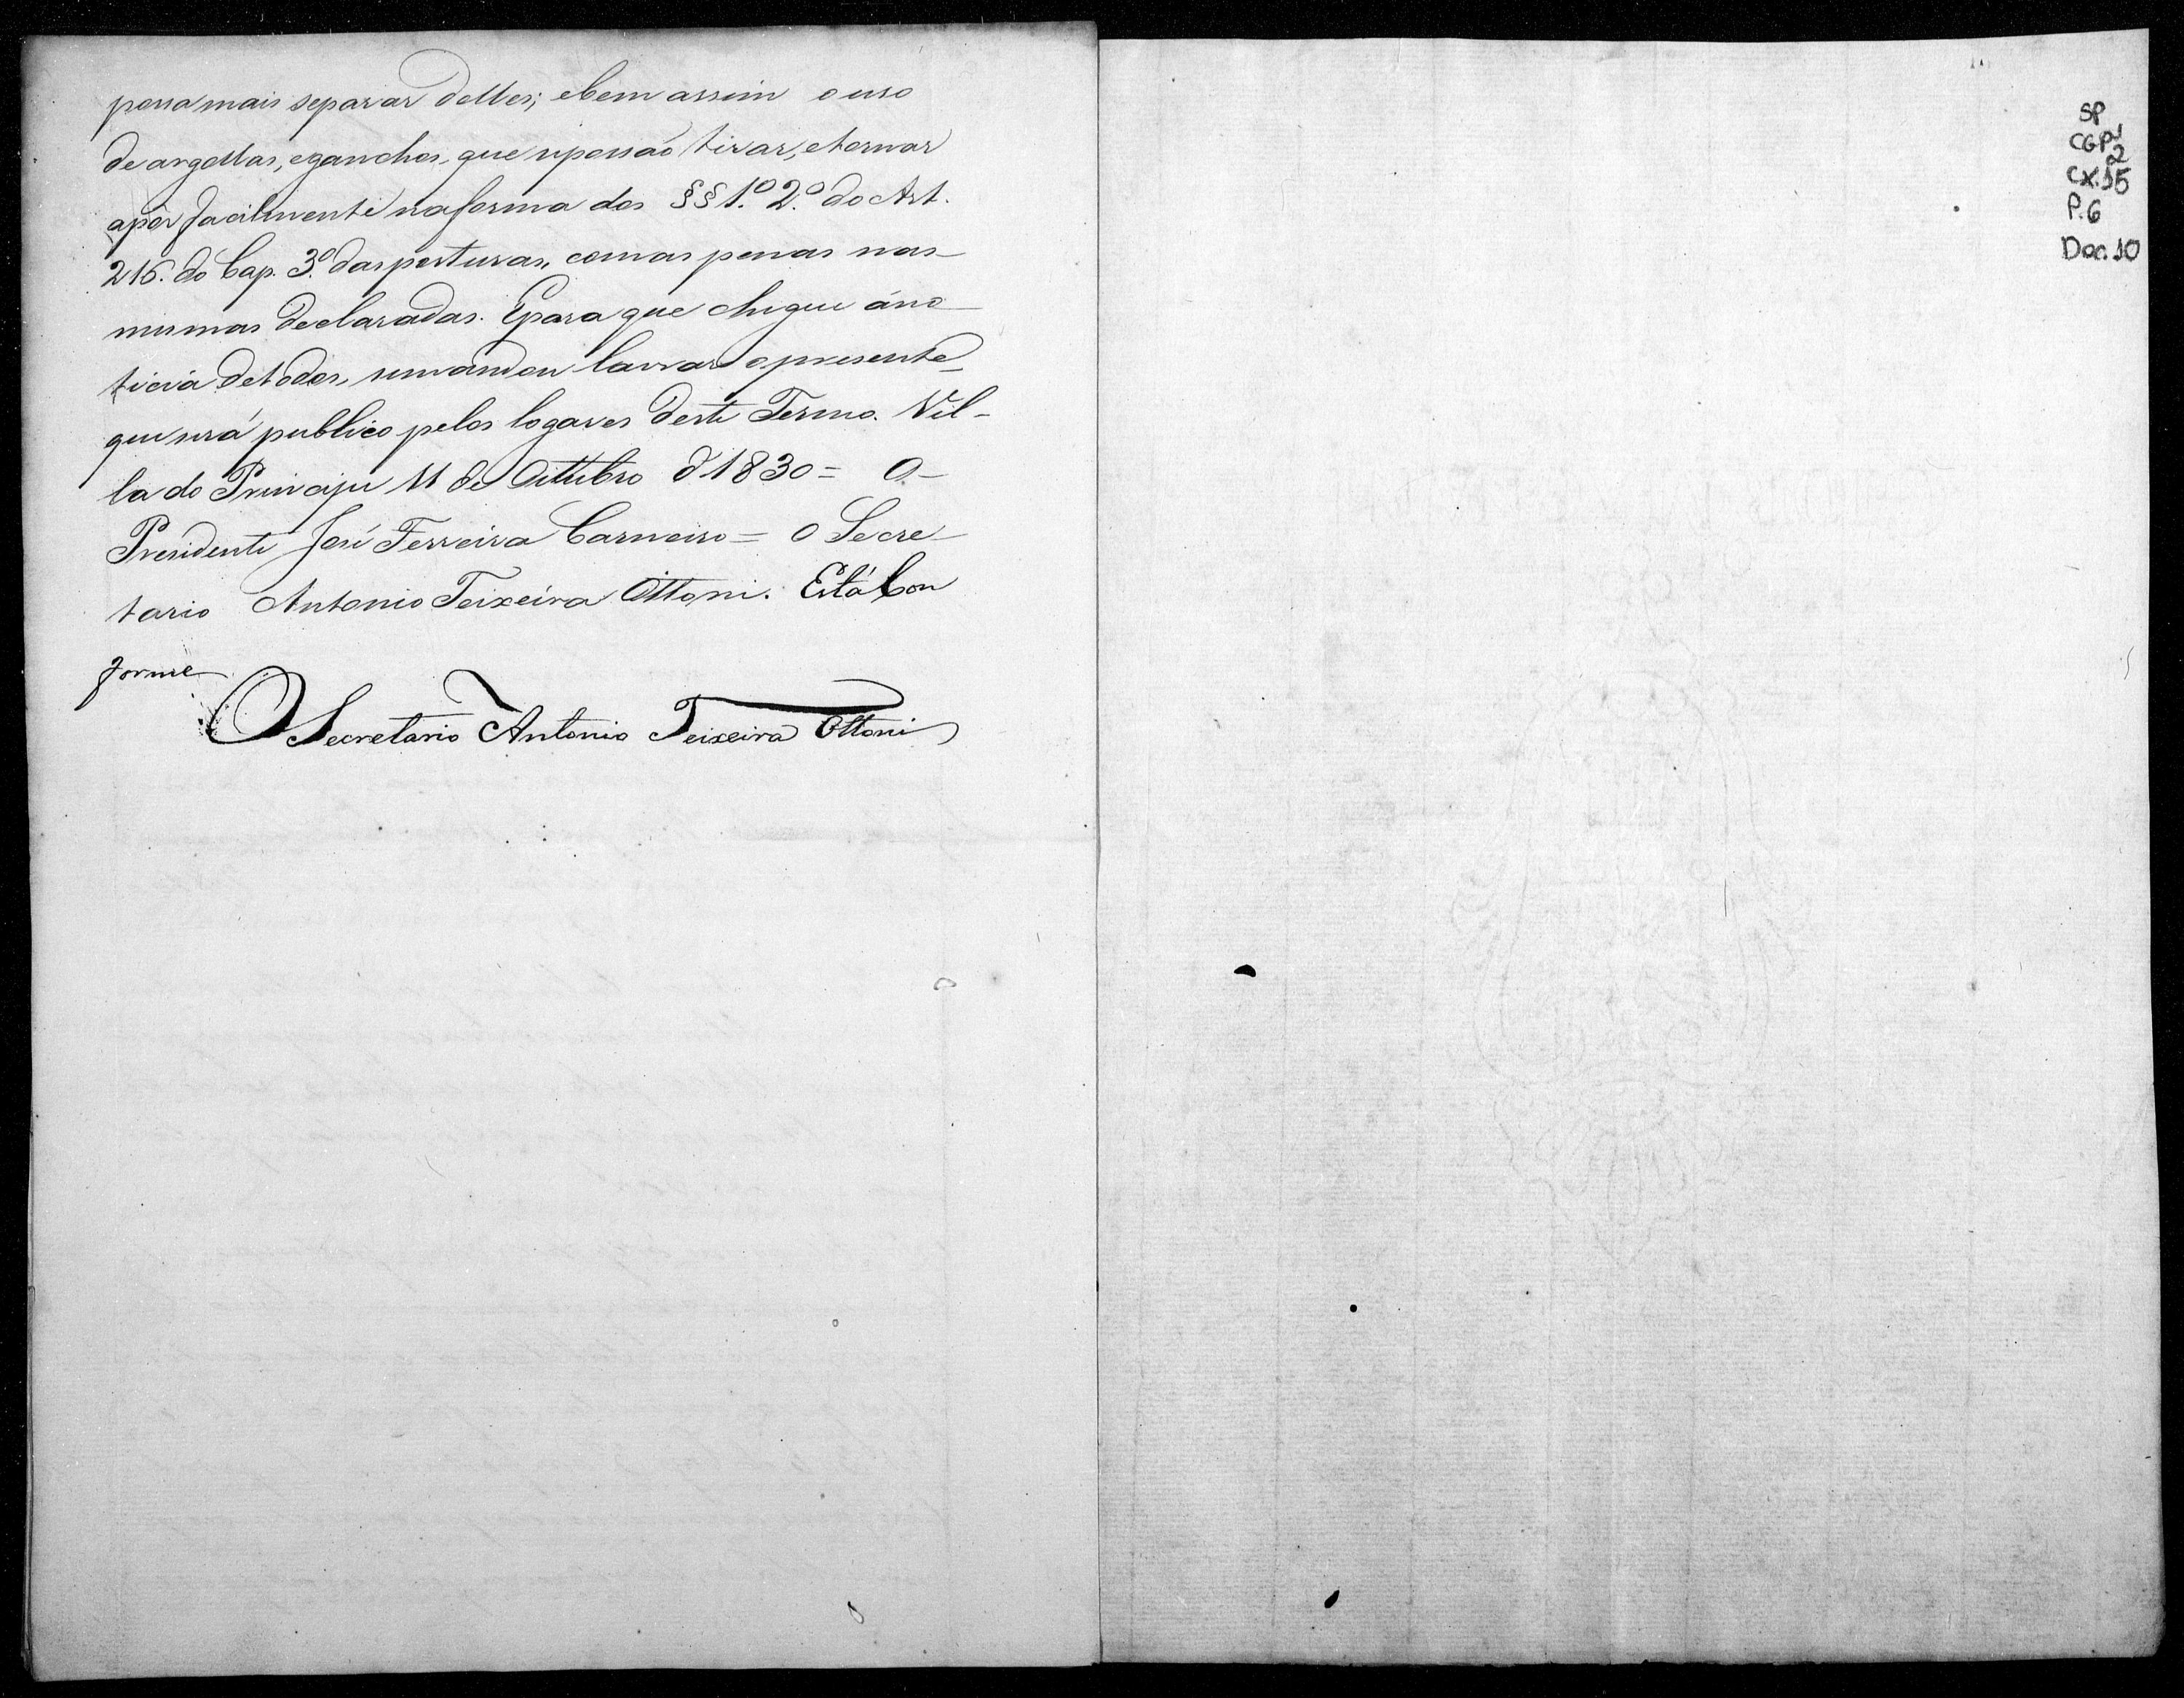 possa mais separar delles; ebem assim o uso
de argollas, eganchos, que sepossaõ tirar, etornar
apôr facilmente naforma dos §§ 1.º 2.º do Art.
216. do Cap. 3.º das posturas, com as penas nas
mesmas declaradas. Epara que chegue áno
ticia detodos, semandou lavrar opresente
que será publico pelos logares deste Termo. Vil-
la do Principe 11 de Outubro d'1830 = O
Presidente José Ferreira Carneiro = O Secre
tario Antonio Teixeira Ottoni. Está Con
forme
O Secretario Antonio Teixeira Ottoni
SP
CGP1
2
CX.15
P.6
Doc.10